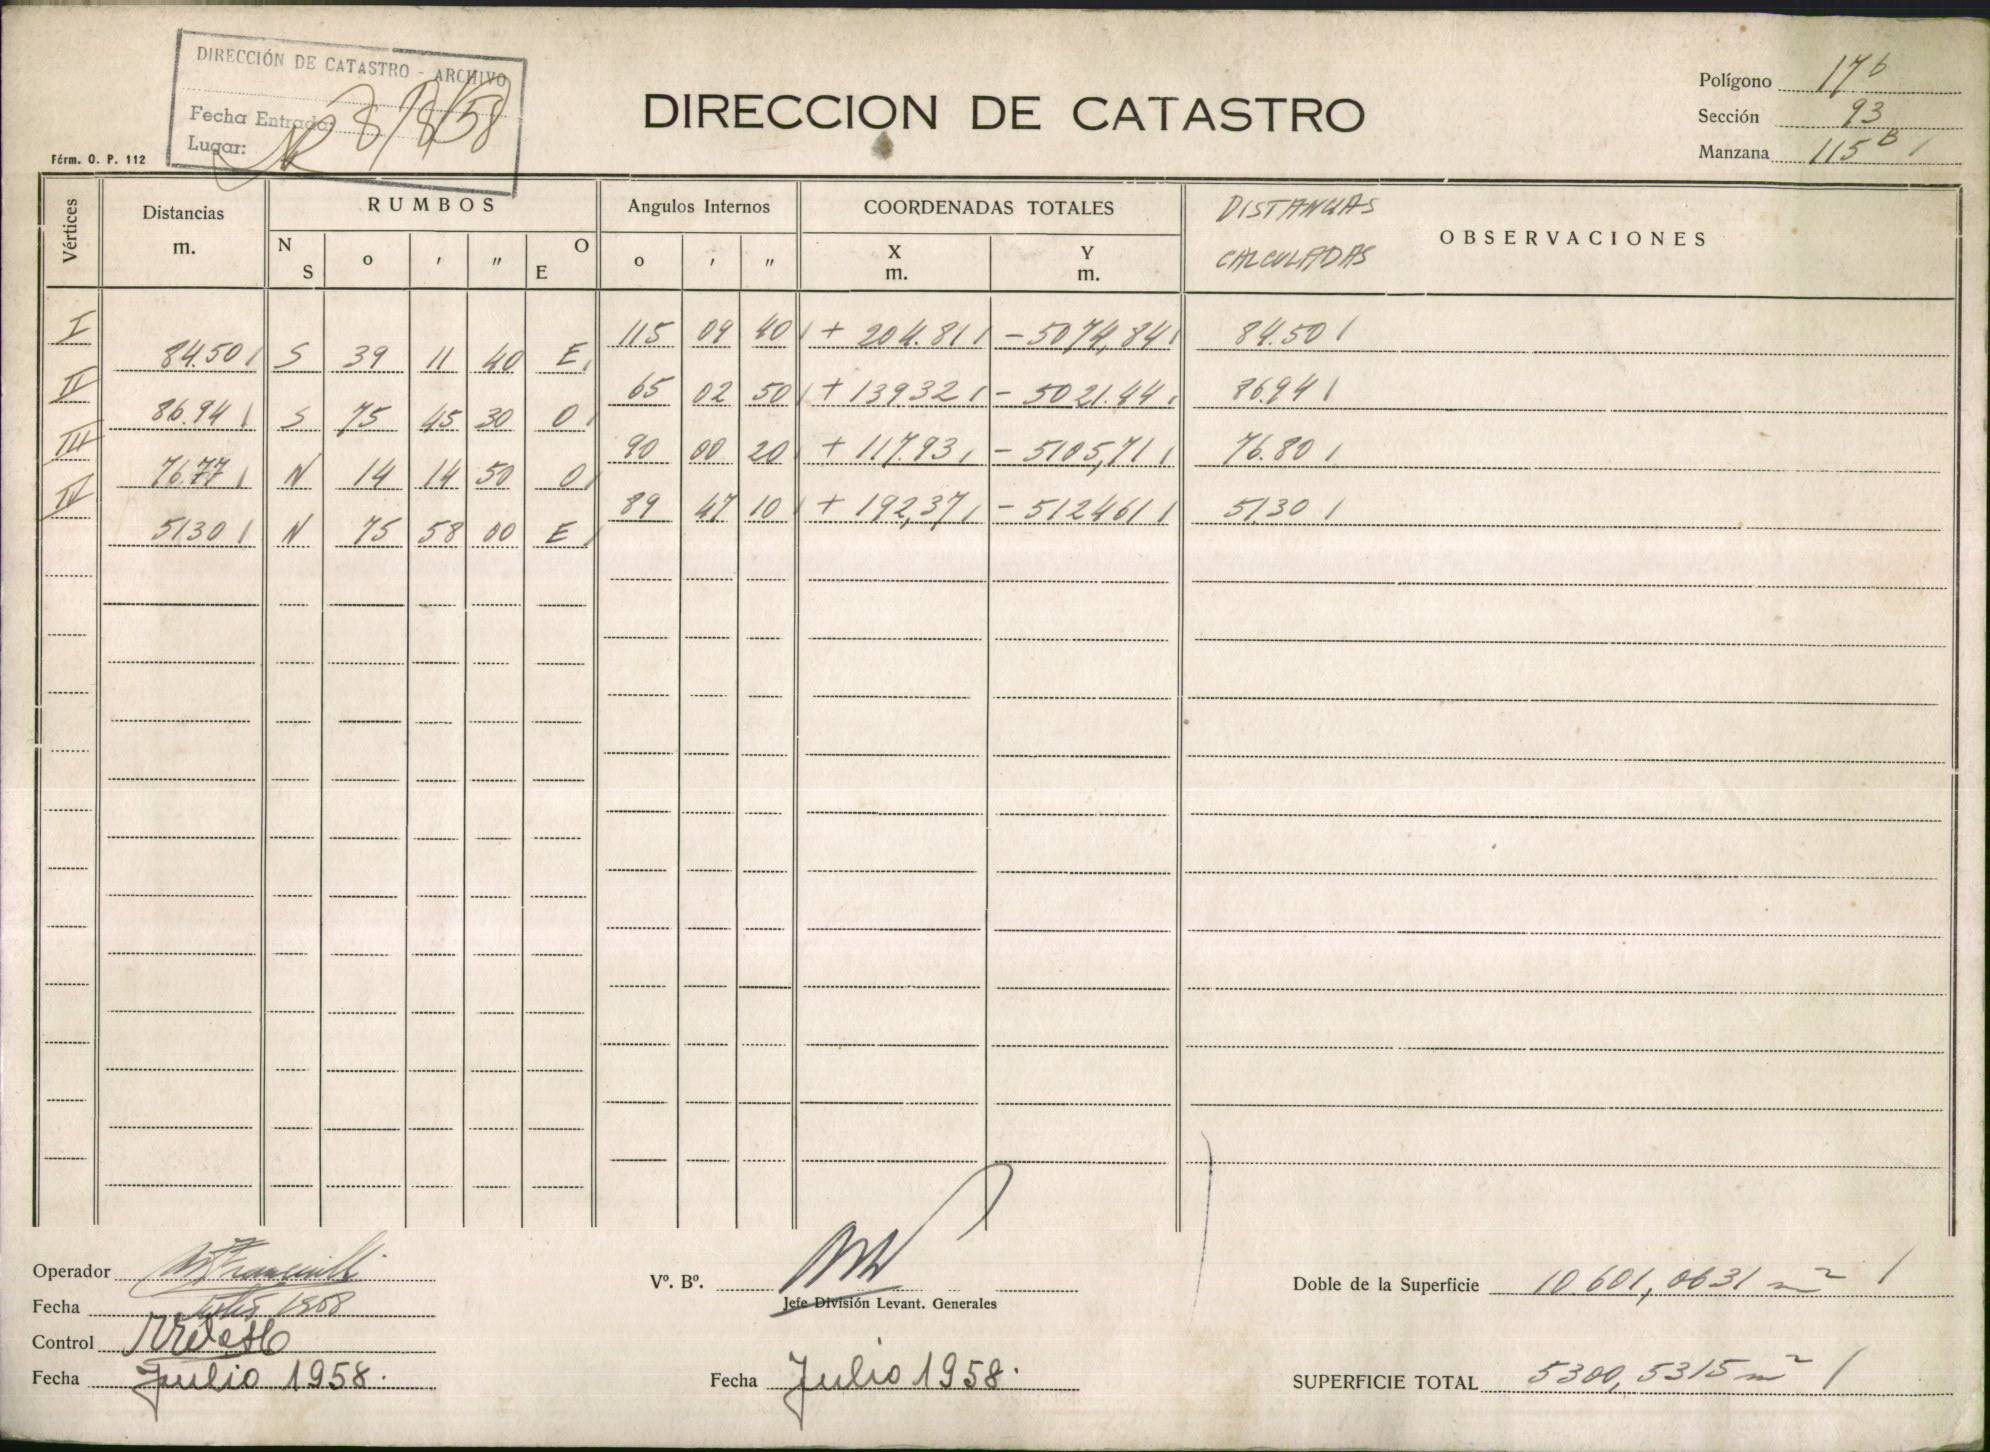 DIRECCIÓN DE CATASTRO - ARCHIVO
Fecha Entrada 8/8/58
Lugar:
Fórm. O. P. 112
DIRECCION DE CATASTRO
Polígono 17b
Sección 93
Manzana 115B /
Vértices Distancias m. RUMBOS Angulos Internos COORDENADAS TOTALES DISTANCIAS CALCULADAS OBSERVACIONES
N S o ' " O E o ' " X m. Y m.
I 115 09 40 / + 204.81 / - 5074,84 / 84.50 /
84.50 / S 39 11 40 E /
II 65 02 50 / + 139 32 / - 5021.44 / 86.94 /
86.94 / S 75 45 30 O /
III 90 00 20 / + 117.93 / - 5105,71 / 76.80 /
76.77 / N 14 14 50 O /
IV 89 47 10 / + 192,37 / - 5124 61 / 51.30 /
51 30 / N 75 58 00 E /
Operador
Fecha Julio 1958
Control
Fecha Julio 1958.
Vº. Bº.
Jefe División Levant. Generales
Fecha Julio 1958.
Doble de la Superficie 10.601,0631 m² /
SUPERFICIE TOTAL 5300,5315 m² /